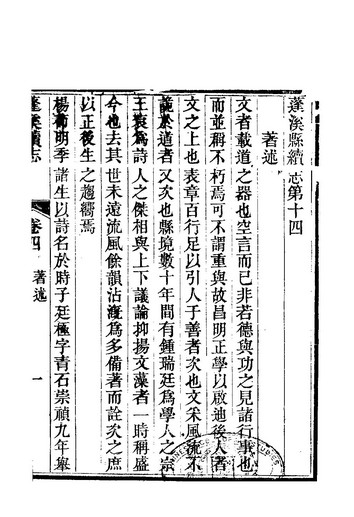 蓬溪縣續志第十四
著述
文者載道之器也空言而已非若德與功之見諸行事也
而並稱不朽焉可不謂重與故昌明正學以啟迪後人者
文之上也表章百行足以引人于善者次也文采風流不
詭於道者又次也縣境數十年間有鍾瑞廷爲學人之宗
王衷爲詩人之傑相與上下議論抑揚文藻者一時稱盛
今也去其世未遠流風餘韻沾漑爲多備著而詮次之庶
以正後生之趨嚮焉
楊衞明季諸生以詩名於時子廷極字靑石崇禎九年舉
蓬溪續志
卷四
著述
一